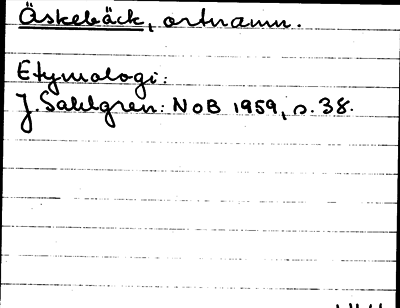 Äskebäck, ortnamn.
Etymologi:
J. Sahlgren: NoB 1959, s. 38.